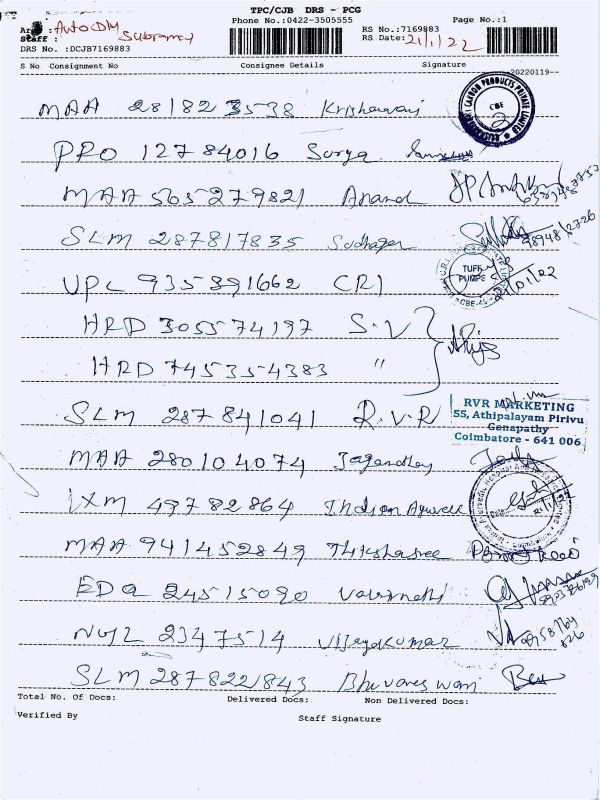 TPC/CJB DRS - PCG
Phone No.:0422-3505555 Page No.:1
Area : AutoDM Subramay
Staff :
RS No.:7169883
RS Date: 21/1/22
DRS No. :DCJB7169883
S No Consignment No Consignee Details Signature
20220119
MAA 28182 3538 Krishaveni
PRO 127 84016 Surya
MAA 565279821 Anand
SLM 287817835 Sudhagar
UPL 935891662 CRI
TUFF PUMPS
HRD 3055 74197 S.V
HRD 745354383 "
SLM 287841041 R.V.R
RVR MARKETING
55, Athipalayam Pirivu
Ganapathy
Coimbatore - 641 006
MAA 280104074
IXM 49782864 Indian Ayurvedic
MAA 941452849 Thikshasree
EDQ 24515090
NGL 2347514 Vijayakumar
SLM 287822843 Bhuvaneswari
Total No. Of Docs: Delivered Docs: Non Delivered Docs:
Verified By Staff Signature